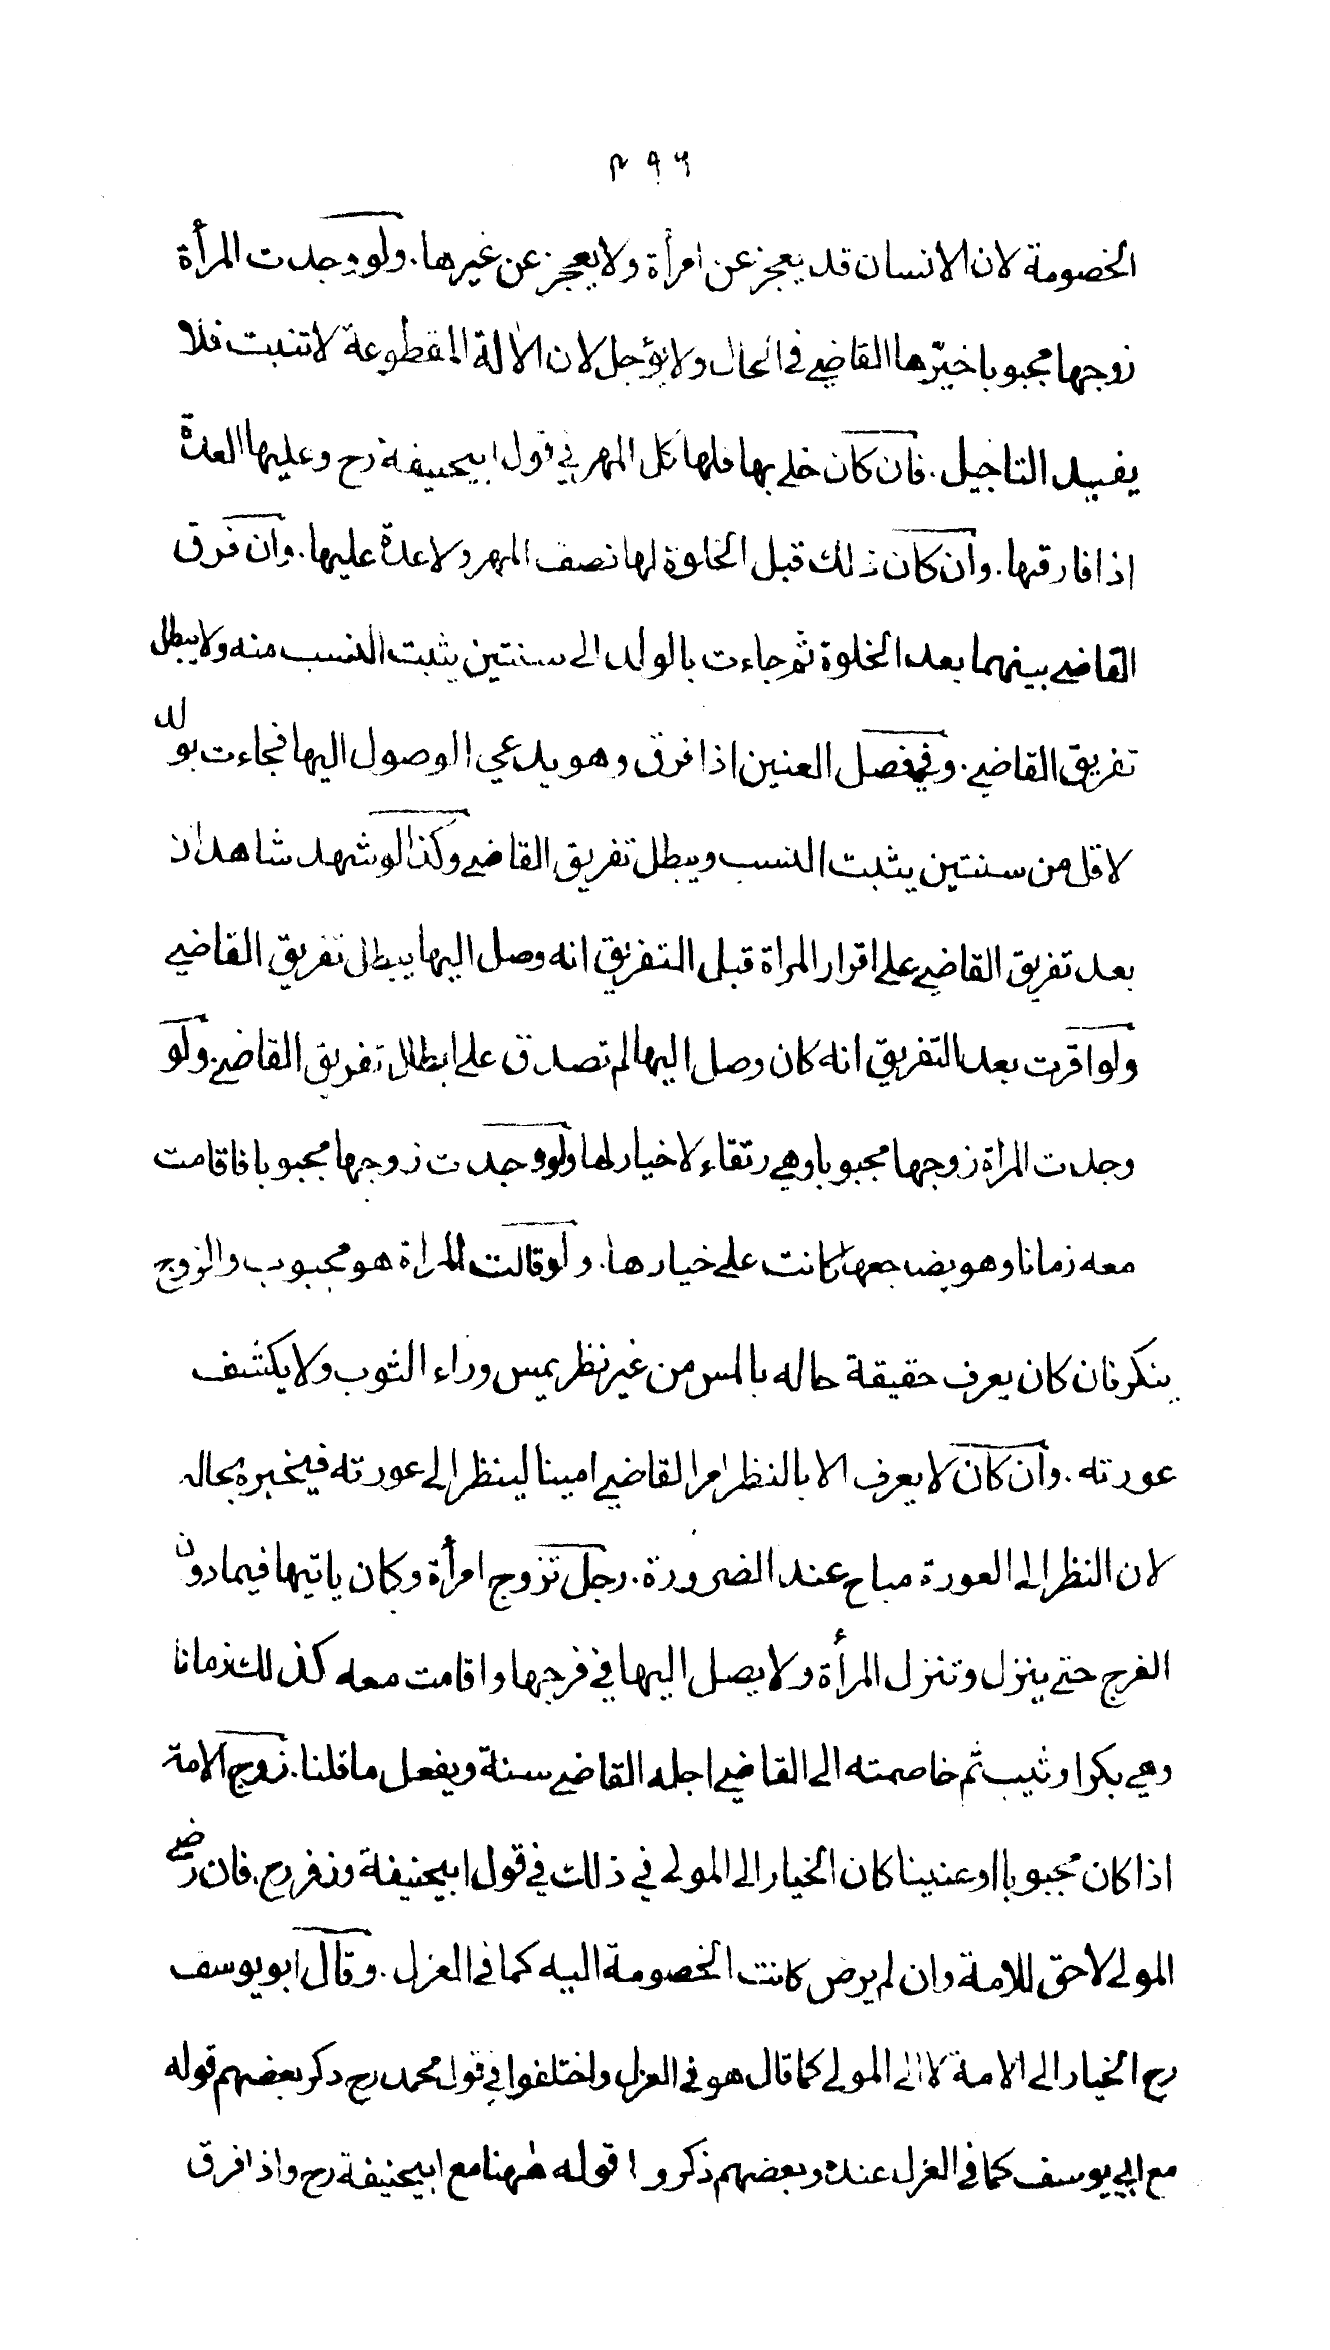 ٤٩٦
الخصومة لان الانسان قد يعجز عن امرأة ولا يعجز عن غيرها. ولو وجدت المرأة
زوجها مجبوبا خيّرها القاضي في الحال ولا يؤجل لان الالة المقطوعة لا تنبت فلا
يفيد التاجيل. فان كان خلي بها فلها كل المهر في قول ابيحنيفة رح وعليها العدة
اذا فارقها. وان كان ذلك قبل الخلوة لها نصف المهر ولا عدة عليها. وان فرق
القاضي بينهما بعد الخلوة ثم جاءت بالولد الى سنتين يثبت النسب منه ولا يبطل
تفريق القاضي. وفي فصل العنين اذا فرق وهو يدعي الوصول اليها فجاءت بولد
لاقل من سنتين يثبت النسب ويبطل تفريق القاضي وكذا لو شهد شاهدان
بعد تفريق القاضي على اقرار المراة قبل التفريق انه وصل اليها يبطل تفريق القاضي
ولو اقرت بعد التفريق انه كان وصل اليها لم تصدق على ابطال تفريق القاضي. ولو
وجدت المراة زوجها مجبوبا وهي رتقاء لا خيار لها ولو وجدت زوجها مجبوبا فاقامت
معه زمانا وهو يضاجعها كانت على خيارها. ولو قالت المراة هو مجبوب والزوج
ينكر فان كان يعرف حقيقة حاله بالمس من غير نظر يمس وراء الثوب ولا يكشف
عورته. وان كان لا يعرف الا بالنظر امر القاضي امينا لينظر الى عورته فيخبره بحاله
لان النظر الى العورة مباح عند الضرورة. رجل تزوج امرأة وكان ياتيها فيما دون
الفرج حتى ينزل وتنزل المرأة ولا يصل اليها في فرجها واقامت معه كذلك زمانا
وهي بكر او ثيب ثم خاصمته الى القاضي اجله القاضي سنة ويفعل ما قلنا. زوج الامة
اذا كان مجبوبا او عنينا كان الخيار الى المولى في ذلك في قول ابيحنيفة وزفر رح. فان رضي
المولى لا حق للامة وان لم يرض كانت الخصومة اليه كما في العزل. وقال ابو يوسف
رح الخيار الى الامة لا الى المولى كما قال هو في العزل واختلفوا في قول محمد رح ذكر بعضهم قوله
مع ابي يوسف كما في العزل عنده وبعضهم ذكروا قوله ههنا مع ابيحنيفة رح واذا فرق